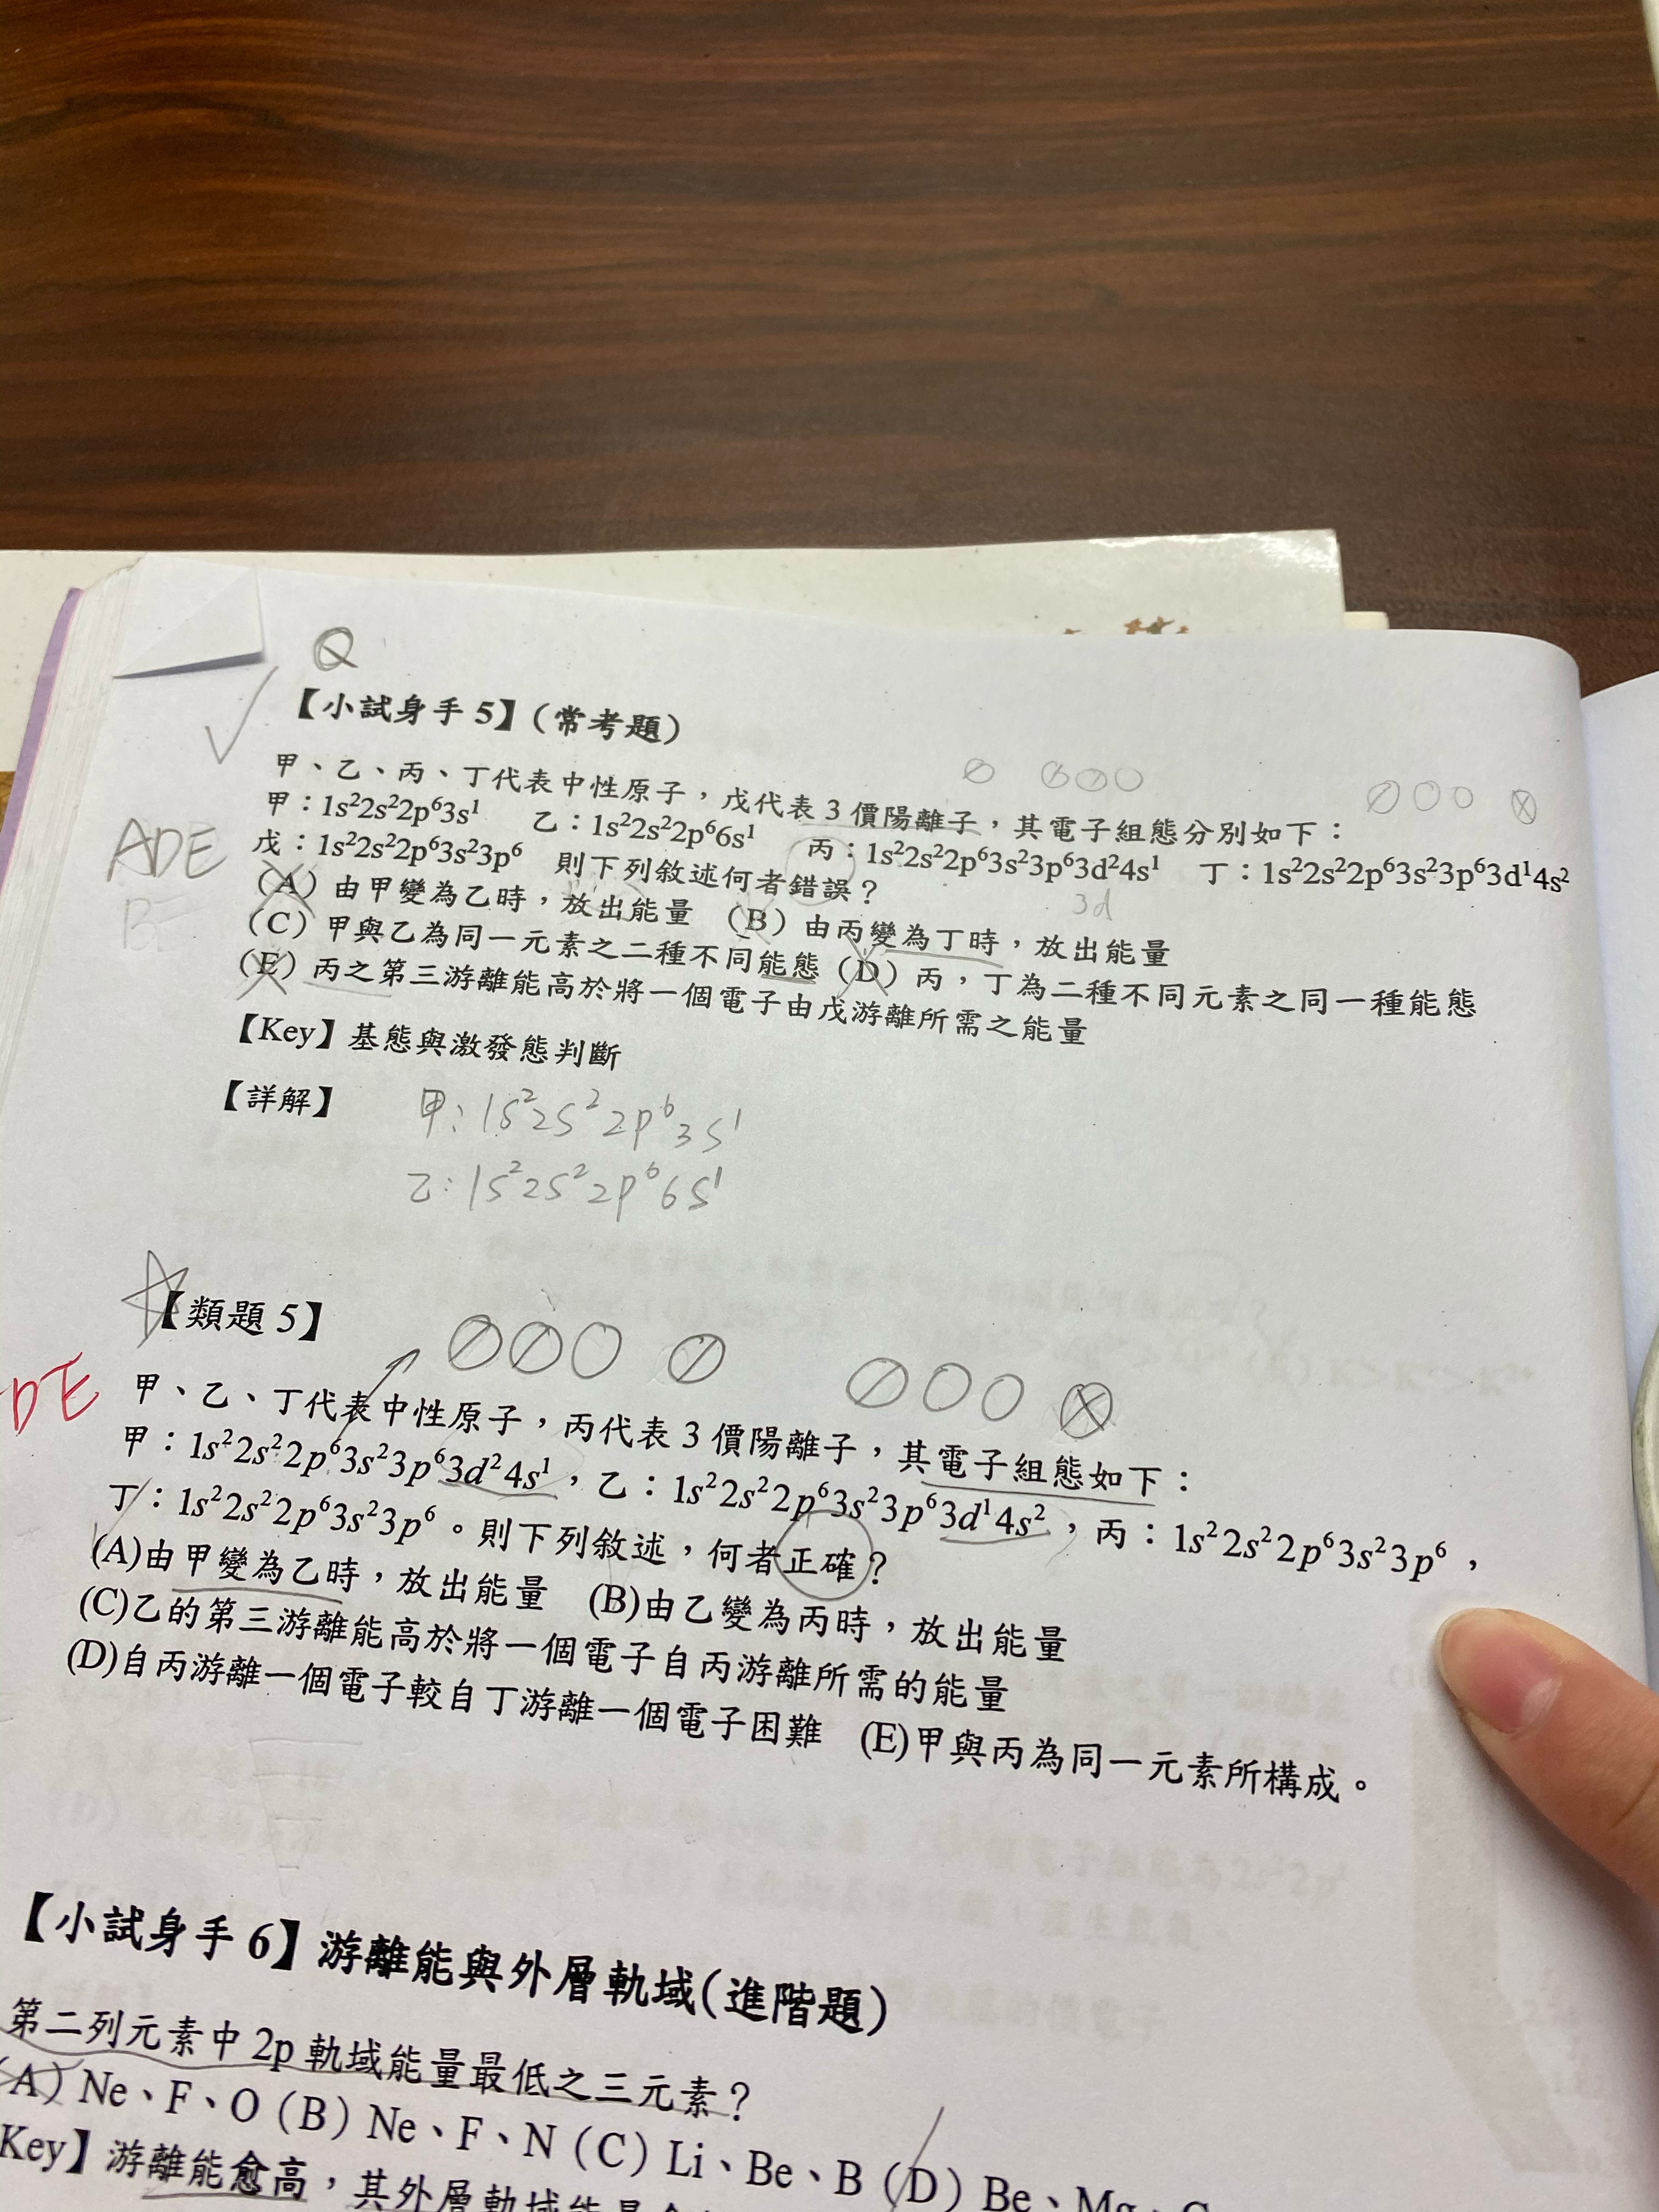 Q
【小試身手 5】(常考題)
甲、乙、丙、丁代表中性原子,戊代表 3 價陽離子,其電子組態分別如下:
甲:1s²2s²2p⁶3s¹ 乙:1s²2s²2p⁶6s¹ 丙:1s²2s²2p⁶3s²3p⁶3d²4s¹ 丁:1s²2s²2p⁶3s²3p⁶3d¹4s²
戊:1s²2s²2p⁶3s²3p⁶ 則下列敘述何者錯誤?
ADE
3d
(A)由甲變為乙時,放出能量 (B)由丙變為丁時,放出能量
(C)甲與乙為同一元素之二種不同能態(D)丙,丁為二種不同元素之同一種能態
(E)丙之第三游離能高於將一個電子由戊游離所需之能量
【Key】基態與激發態判斷
【詳解】
甲:1s²2s²2p⁶3s¹
乙:1s²2s²2p⁶6s¹
【類題 5】
DE
甲、乙、丁代表中性原子,丙代表 3 價陽離子,其電子組態如下:
甲:1s²2s²2p⁶3s²3p⁶3d²4s¹,乙:1s²2s²2p⁶3s²3p⁶3d¹4s²,丙:1s²2s²2p⁶3s²3p⁶,
丁:1s²2s²2p⁶3s²3p⁶。則下列敘述,何者正確?
(A)由甲變為乙時,放出能量 (B)由乙變為丙時,放出能量
(C)乙的第三游離能高於將一個電子自丙游離所需的能量
(D)自丙游離一個電子較自丁游離一個電子困難 (E)甲與丙為同一元素所構成。
【小試身手 6】游離能與外層軌域(進階題)
第二列元素中 2p 軌域能量最低之三元素?
(A) Ne、F、O (B) Ne、F、N (C) Li、Be、B (D) Be、Mg、
Key】游離能愈高,其外層軌域能量